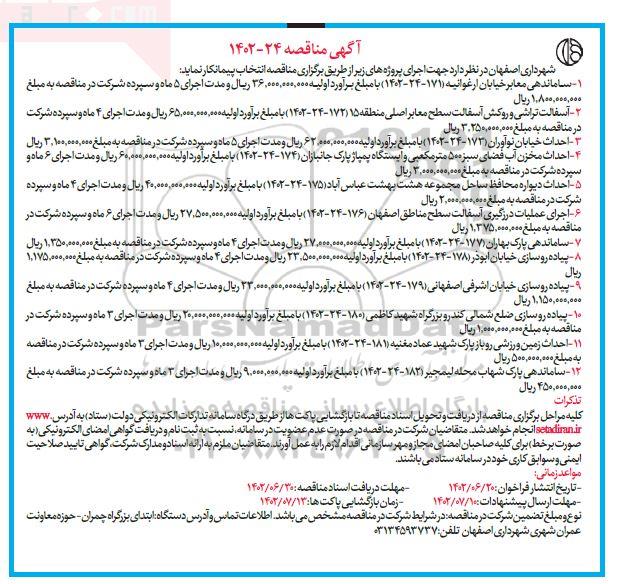 آگهی مناقصه ۲۴-۱۴۰۲
شهرداری اصفهان در نظر دارد جهت اجرای پروژه های زیر از طریق برگزاری مناقصه انتخاب پیمانکار نماید:
۱- ساماندهی معابر خیابان ارغوانیه (۱۷۱-۲۴-۱۴۰۲) با مبلغ برآورد اولیه ۳۶,۰۰۰,۰۰۰,۰۰۰ ریال و مدت اجرای ۵ ماه و سپرده شرکت در مناقصه به مبلغ
۱,۸۰۰,۰۰۰,۰۰۰ ریال
۲- آسفالت تراشی و روکش آسفالت سطح معابر اصلی منطقه ۱۵ (۱۷۲-۲۴-۱۴۰۲) با مبلغ برآورد اولیه ۶۵,۰۰۰,۰۰۰,۰۰۰ ریال و مدت اجرای ۴ ماه و سپرده شرکت
در مناقصه به مبلغ ۳,۲۵۰,۰۰۰,۰۰۰ ریال
۳- احداث خیابان نوآوران (۱۷۳-۲۴-۱۴۰۲) با مبلغ برآورد اولیه ۶۲,۰۰۰,۰۰۰,۰۰۰ ریال و مدت اجرای ۵ ماه و سپرده شرکت در مناقصه به مبلغ ۳,۱۰۰,۰۰۰,۰۰۰ ریال
۴- احداث مخزن آب فضای سبز ۵۰۰ مترمکعبی و ایستگاه پمپاژ پارک جانبازان (۱۷۴-۲۴-۱۴۰۲) با مبلغ برآورد اولیه ۶۰,۰۰۰,۰۰۰,۰۰۰ ریال و مدت اجرای ۶ ماه و
سپرده شرکت در مناقصه به مبلغ ۳,۰۰۰,۰۰۰,۰۰۰ ریال
۵- احداث دیواره محافظ ساحل مجموعه هشت بهشت عباس آباد (۱۷۵-۲۴-۱۴۰۲) با مبلغ برآورد اولیه ۴۰,۰۰۰,۰۰۰,۰۰۰ ریال و مدت اجرای ۴ ماه و سپرده
شرکت در مناقصه به مبلغ ۲,۰۰۰,۰۰۰,۰۰۰ ریال
۶- اجرای عملیات درزگیری آسفالت سطح مناطق اصفهان (۱۷۶-۲۴-۱۴۰۲) با مبلغ برآورد اولیه ۲۷,۵۰۰,۰۰۰,۰۰۰ ریال و مدت اجرای ۶ ماه و سپرده شرکت در
مناقصه به مبلغ ۱,۳۷۵,۰۰۰,۰۰۰ ریال
۷- ساماندهی پارک بهاران (۱۷۷-۲۴-۱۴۰۲) با مبلغ برآورد اولیه ۲۷,۰۰۰,۰۰۰,۰۰۰ ریال و مدت اجرای ۴ ماه و سپرده شرکت در مناقصه به مبلغ ۱,۳۵۰,۰۰۰,۰۰۰ ریال
۸- پیاده روسازی خیابان ابوذر (۱۷۸-۲۴-۱۴۰۲) با مبلغ برآورد اولیه ۲۳,۵۰۰,۰۰۰,۰۰۰ ریال و مدت اجرای ۴ ماه و سپرده شرکت در مناقصه به مبلغ ۱,۱۷۵,۰۰۰,۰۰۰
ریال
۹- پیاده روسازی خیابان اشرفی اصفهانی (۱۷۹-۲۴-۱۴۰۲) با مبلغ برآورد اولیه ۲۳,۰۰۰,۰۰۰,۰۰۰ ریال و مدت اجرای ۴ ماه و سپرده شرکت در مناقصه به مبلغ
۱,۱۵۰,۰۰۰,۰۰۰ ریال
۱۰- پیاده روسازی ضلع شمالی کندرو بزرگراه شهید کاظمی (۱۸۰-۲۴-۱۴۰۲) با مبلغ برآورد اولیه ۲۰,۰۰۰,۰۰۰,۰۰۰ ریال و مدت اجرای ۳ ماه و سپرده شرکت در
مناقصه به مبلغ ۱,۰۰۰,۰۰۰,۰۰۰ ریال
۱۱- احداث زمین ورزشی روباز پارک شهید عماد مغنیه (۱۸۱-۲۴-۱۴۰۲) با مبلغ برآورد اولیه ۱۰,۰۰۰,۰۰۰,۰۰۰ ریال و مدت اجرای ۳ ماه و سپرده شرکت در مناقصه
به مبلغ ۵۰۰,۰۰۰,۰۰۰ ریال
۱۲- ساماندهی پارک شهاب محله لیمجیر (۱۸۲-۲۴-۱۴۰۲) با مبلغ برآورد اولیه ۹,۰۰۰,۰۰۰,۰۰۰ ریال و مدت اجرای ۳ ماه و سپرده شرکت در مناقصه به مبلغ
۴۵۰,۰۰۰,۰۰۰ ریال
تذکرات
کلیه مراحل برگزاری مناقصه از دریافت و تحویل اسناد مناقصه تا بازگشایی پاکت ها از طریق درگاه سامانه تدارکات الکترونیکی دولت (ستاد) به آدرس www.
setadiran.ir انجام خواهد شد. متقاضیان شرکت در مناقصه در صورت عدم عضویت در سامانه، نسبت به ثبت نام و دریافت گواهی امضای الکترونیکی (به
صورت برخط) برای کلیه صاحبان امضای مجاز و مهر سازمانی اقدام لازم را به عمل آورند. متقاضیان ملزم به ارائه اسناد و مدارک شرکت، گواهی تایید صلاحیت
ایمنی و سوابق کاری خود در سامانه ستاد می باشند.
مواعد زمانی:
-تاریخ انتشار فراخوان: ۱۴۰۲/۰۶/۲۰ -مهلت دریافت اسناد مناقصه: ۱۴۰۲/۰۶/۳۰
-مهلت ارسال پیشنهادات: ۱۴۰۲/۰۷/۱۰ - زمان بازگشایی پاکت ها: ۱۴۰۲/۰۷/۱۳
نوع و مبلغ تضمین شرکت در مناقصه: در شرایط شرکت در مناقصه مشخص می باشد. اطلاعات تماس و آدرس دستگاه: ابتدای بزرگراه چمران - حوزه معاونت
عمران شهری شهرداری اصفهان تلفن: ۰۳۱۳۴۵۹۳۷۳۷
ParsNamadData
پایگاه اطلاع رسانی مناقصه و مزایده